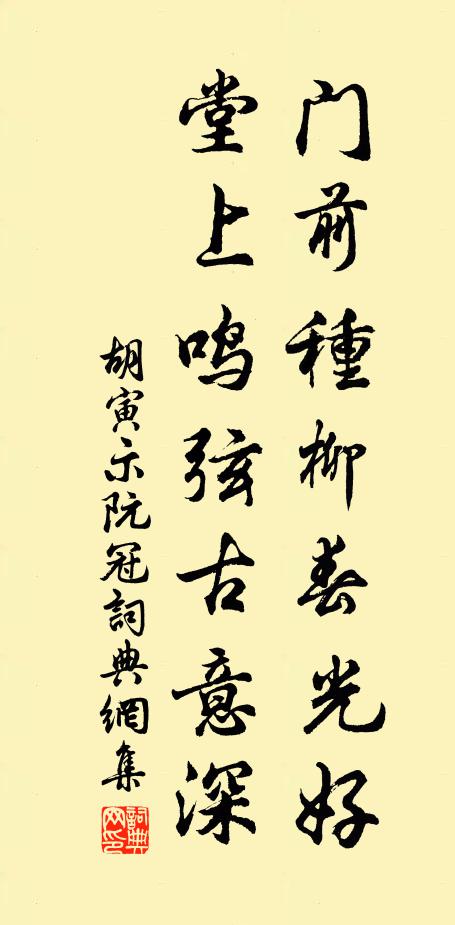 门前種柳春光好
堂上鸣弦古意深
胡寅示阮冠詞典網集
詞典网印